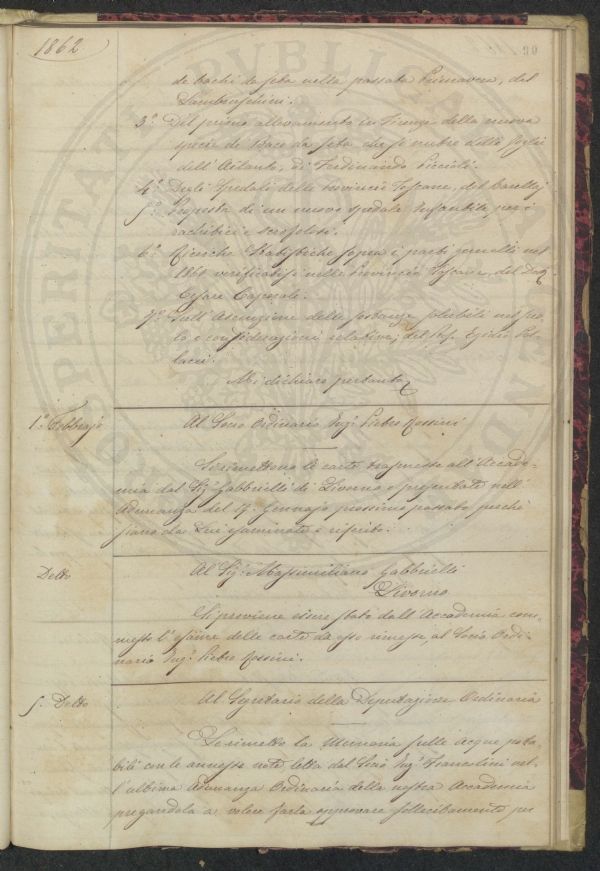 1862
90
de bachi da seta nella passata Primavera, del
Lambruschini.
3.° Del primo allevamento in Firenze della nuova
specie di Baco da seta che si nutre delle foglie
dell'Ailanto, di Ferdinando Piccioli.
4.° Degli Spedali delle Provincie Toscane, del Barellaj
5.° Proposta di un nuovo spedale Infantile, per i
rachitici e scrofolosi.
6.° Ricerche Statistiche sopra i parti gemelli nel
1860 verificatisi nelle Provincie Toscane, del Dott.
Cesare Capezzoli.
7.° Sull'Ascensione delle sostanze solubili nel suo-
lo e considerazioni relative, del Prof. Egidio Pol-
lacci.
Mi dichiaro pertanto
1.° Febbrajo
Al Socio Ordinario Ing.r Pietro Rossini
Si rimettono le carte trasmesse all'Accade-
mia dal Sig.r Gabbrielli di Livorno e presentate nell'
Adunanza del 19. Gennajo prossimo passato perchè
siano da Lei esaminate e riferito.
Detto
Al Sig.r Massimiliano Gabbrielli
Livorno
Si previene essere stato dall'Accademia com-
messo l'esame delle carte da esso rimesse, al Socio Ordi-
nario Ing.r Pietro Rossini.
5. Detto
Al Segretario della Deputazione Ordinaria
Le rimetto la Memoria sulle acque pota-
bili con le annesse note letta dal Socio Ing.r Francolini nel-
l'ultima Adunanza Ordinaria della nostra Accademia
pregandola a volere farla approvare sollecitamente per
PROSPERITATI PVBLICAE